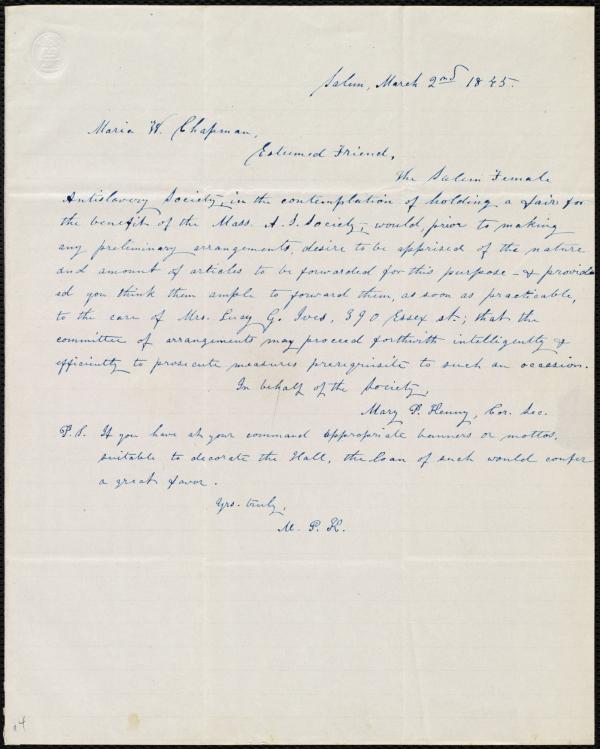 Salem, March 2nd 1845.
Maria W. Chapman,
Esteemed Friend,
The Salem Female
Antislavery Society, in the contemplation of holding a Fair for
the benefit of the Mass. A. S. Society, would, prior to making
any preliminary arrangements, desire to be apprised of the nature
and amount of articles to be forwarded for this purpose - & provid
ed you think them ample to forward them, as soon as practicable,
to the care of Mrs. Lucy G. Ives, 390 Essex st.; that the
committee of arrangements may proceed forthwith intelligently &
efficiently to prosecute measures prerequisite to such an occasion.
In behalf of the Society,
Mary P. Kenny, Cor. Sec.
P.S. If you have at your command appropriate banners or mottos,
suitable to decorate the Hall, the loan of such would confer
a great favor.
Yrs. truly,
M. P. K.